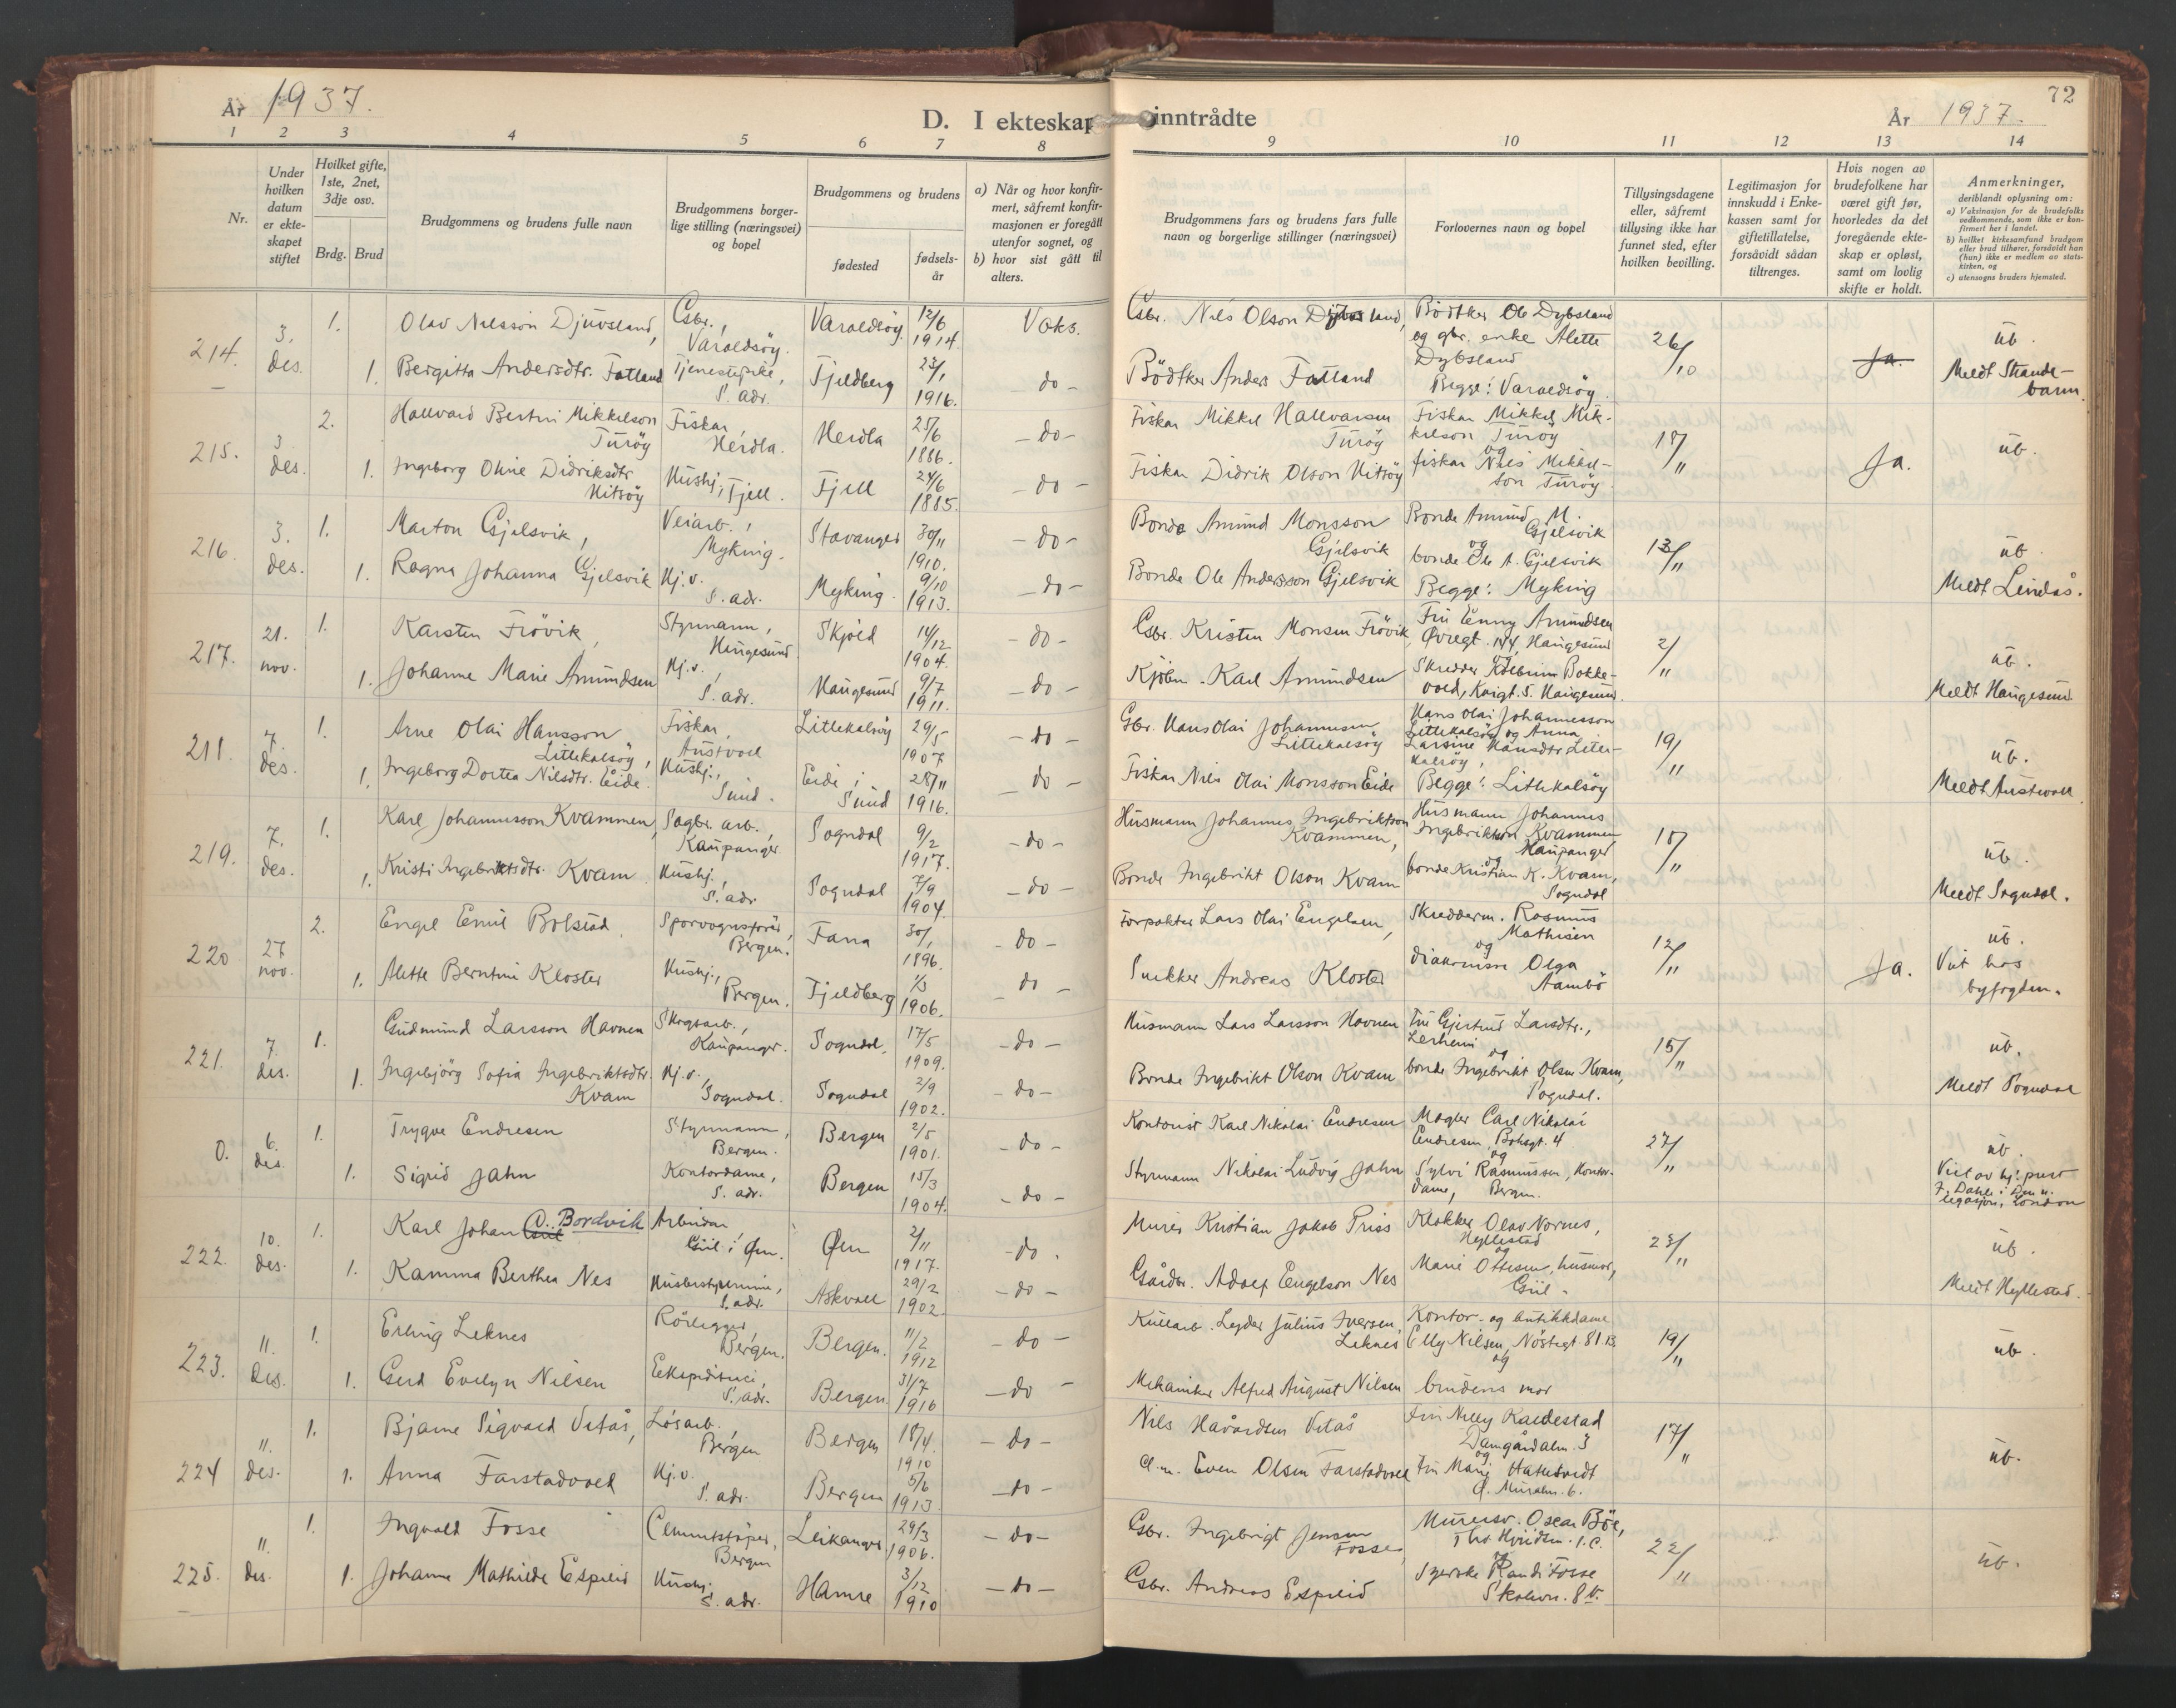 År 1937.
D. I ekteskap
1 2 3 4 5 6 7 8
Nr.
Under hvilken datum er ekteskapet stiftet
Hvilket gifte, 1ste, 2net, 3dje osv.
Brdg. Brud
Brudgommens og brudens fulle navn
Brudgommens borgerlige stilling (næringsvei) og bopel
Brudgommens og brudens
fødested
fødselsår
a) Når og hvor konfirmert, såfremt konfirmasjonen er foregått utenfor sognet, og
b) hvor sist gått til alters.
214. 3. des. 1. Olav Nilsson Djuvsland, Gbr., Varaldsöy. Varaldsöy 12/6 1914. Vaks.
1. Bergitta Andersdtr. Fatland Tjenestepike, S. adr. Fjeldberg 23/1 1916. - do -
215. 3. des. 2. Hallvard Bertin Mikkelson Turöy Fiskar, Herdla. Herdla 25/6 1886. - do -
1. Ingeborg Oline Didriksdtr. Vitsöy Hushj., Fjell. Fjell 24/6 1885. - do -
216. 3. des. 1. Marton Gjelsvik, Veiarb., Myking. Stavanger 30/11 1910. - do -
1. Ragna Johanna Gjelsvik Hj.v. S. adr. Myking. 9/10 1913. - do -
217. 21. nov. 1. Karsten Frövik, Styrmann, Haugesund Skjold 14/12 1904. - do -
1. Johanne Marie Amundsen Hj.v. S. adr. Haugesund 9/7 1911. - do -
218. 7. des. 1. Arne Olai Hansson Littlekalsöy, Fiskar, Austvoll Littlekalsöy 29/5 1907 - do -
1. Ingeborg Dortea Nilsdtr. Eide. Hushj., Sund. Eide i Sund 28/11 1916. - do -
219. 7. des. 1. Karl Johannesson Kvammen, Sagbr. arb., Kaupanger Sogndal 9/2 1917. - do -
1. Kristi Ingebriktsdtr. Kvam Hushj., S. adr. Sogndal 7/9 1904. - do -
220 27 nov. 2. Engel Emil Bolstad. Sporvognsförer, Bergen. Fana 30/1 1896. - do -
1. Alette Berntine Kloster Hushj., Bergen. Fjeldberg 1/3 1906. - do -
221. 7. des. 1. Gudmund Larsson Havnen Skogsarb., Kaupanger. Sogndal. 17/5 1909. - do -
1. Ingebjörg Sofia Ingebriktsdtr. Kvam Hj.v. Sogndal. Sogndal 2/9 1902. - do -
0. 6. des. 1. Trygve Endresen Styrmann, Bergen. Bergen 2/5 1901. - do -
1. Sigrid Jahn Kontordame, S. adr. Bergen 15/3 1904. - do -
222. 10. des. 1. Karl Johan C. Bordvik Arbeidar, Guil i Øen. Øen 2/11 1917. - do -
1. Kamma Berthea Nes Husbestyrerinne, S. adr. Askvoll 29/2 1902. - do -
223. 11. des. 1. Erling Leknes Rörlegger, Bergen. Bergen. 11/2 1912 - do -
1. Gerd Evelyn Nilsen Eekspeditrice, S. adr. Bergen. 31/7 1916 - do -
224 11. des. 1. Bjarne Sigvald Vetås, Lösarb., Bergen Bergen 18/4. 1910 - do -
1. Anna Farstadvoll Hj.v. S. adr. Bergen 5/6 1913. - do -
225. 11. des. 1. Ingvald Fosse Cementstöper, Bergen Leikanger 29/3 1906. - do -
1. Johanne Mathilde Espelid Hushj. S. adr. Hamre 3/12 1910 - do -
inntrådte
År 1937.
72
9 10 11 12 13 14
Brudgommens fars og brudens fars fulle navn og borgerlige stillinger (næringsvei)
Forlovernes navn og bopel
Tillysingsdagene eller, såfremt tillysing ikke har funnet sted, efter hvilken bevilling.
Legitimasjon for innskudd i Enkekassen samt for giftetillatelse, forsåvidt sådan tiltrenges.
Hvis nogen av brudefolkene har været gift før, hvorledes da det foregående ekteskap er opløst, samt om lovlig skifte er holdt.
Anmerkninger, deriblandt oplysning om:
a) Vaksinasjon for de brudefolks vedkommende, som ikke er konfirmert her i landet.
b) hvilket kirkesamfund brudgom eller brud tilhører, forsåvidt han (hun) ikke er medlem av statskirken, og
c) utensogns bruders hjemsted.
Gbr. Nils Olson Djuvsland, Bödtker Ole Dybsland og gbr. enke Alette Dybsland Begge: Varaldsöy. 26/10 Ja. üb. Meldt Strandebarm.
Bödtker Anders Fatland
Fiskar Mikkel Hallvarsen Turöy Fiskar Mikkel Mikkelson Turöy og fiskar Nils Mikkelson Turöy. 18/11 Ja. üb.
Fiskar Didrik Olson Vitsöy
Bonde Amund Monsson Gjelsvik Bonde Amund M. Gjelsvik og bonde Ole A. Gjelsvik Begge: Myking 13/11 üb. Meldt Lindås.
Bonde Ole Andersson Gjelsvik
Gbr. Kristen Monsen Frövik, Fru Enny Amundsen Øvregt. 144, Haugesund og Skredder Kolbein Bokkevold, Kaigt. 5. Haugesund. 2/11 üb. Meldt Haugesund.
Kjöbm. Karl Amundsen
Gbr. Hans Olai Johannesen Littlekalsöy Hans Olai Johannesson Littlekalsöy og Anna Larsine Hansdtr. Litlekalsöy, Begge: Littlekalsöy 19/11 üb. Meldt Austevoll
Fiskar Nils Olai Monsson Eide
Husmann Johannes Ingebriktson Kvammen, Husmann Johannes Ingebriktson Kvammen Kaupanger og bonde Kristian K. Kvam, Sogndal 18/11 üb. Meldt Sogndal.
Bonde Ingebrikt Olson Kvam
Forpakter Lars Olai Engelsen, Skredderm. Rasmus Mathisen og diakonisse Olga Aambö 12/11 Ja. üb. Viet hos byfogden.
Snekker Andreas Kloster
Husmann Lars Larsson Havnen Fru Gjertrud Larsdtr., Lerheim og bonde Ingebrikt Olsen Kvam, Sogndal. 15/11 üb. Meldt Sogndal
Bonde Ingebrikt Olson Kvam
Kontorist Karl Nikolai Endresen Megler Carl Nikolai Endresen, Bohsgt. 4 og Sylvi Rasmussen, kontordame, Bergen. 27/11 üb. Viet av hj. prest F. Dahle i Den n. legasjon, London
Styrmann Nikolai Ludvig Jahn
Murer Kristian Jakob Friis Klokker Olav Vornes, Hyllestad og Marie Ottesen, husmor, Guil. 23/11 üb. Meldt Hyllestad.
Gårdbr. Adolf Engelson Nes
Kullarb. Leyder Julius Iversen Leknes Kontor- og butikkdame Elly Nilsen, Nöstegt. 81 B. og brudens mor 19/11 üb.
Mekaniker Alfred August Nilsen
Nils Havardsen Vetås Fru Nelly Kaldestad Damgårdalm. 3 og Fru Marie Hatlestad C. Muralm. 6. 17/11 üb.
Even Olsen Farstadvoll
Gbr. Ingebrigt Jensen Fosse, Murersv. Oscar Böe, og Syerske Randi Fosse 22/11 üb.
Gbr. Andreas Espelid